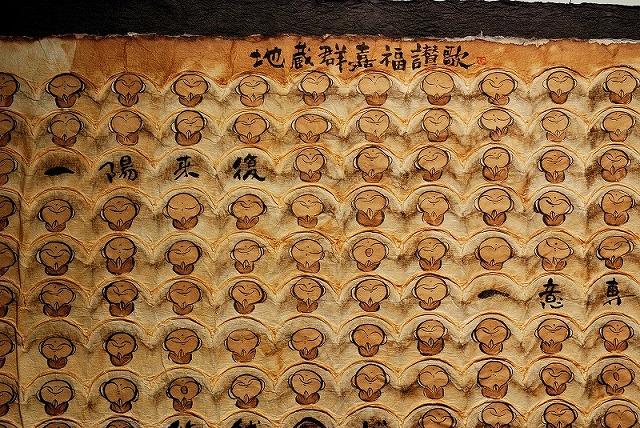 地蔵群喜福讃歌
一陽来復
一意真